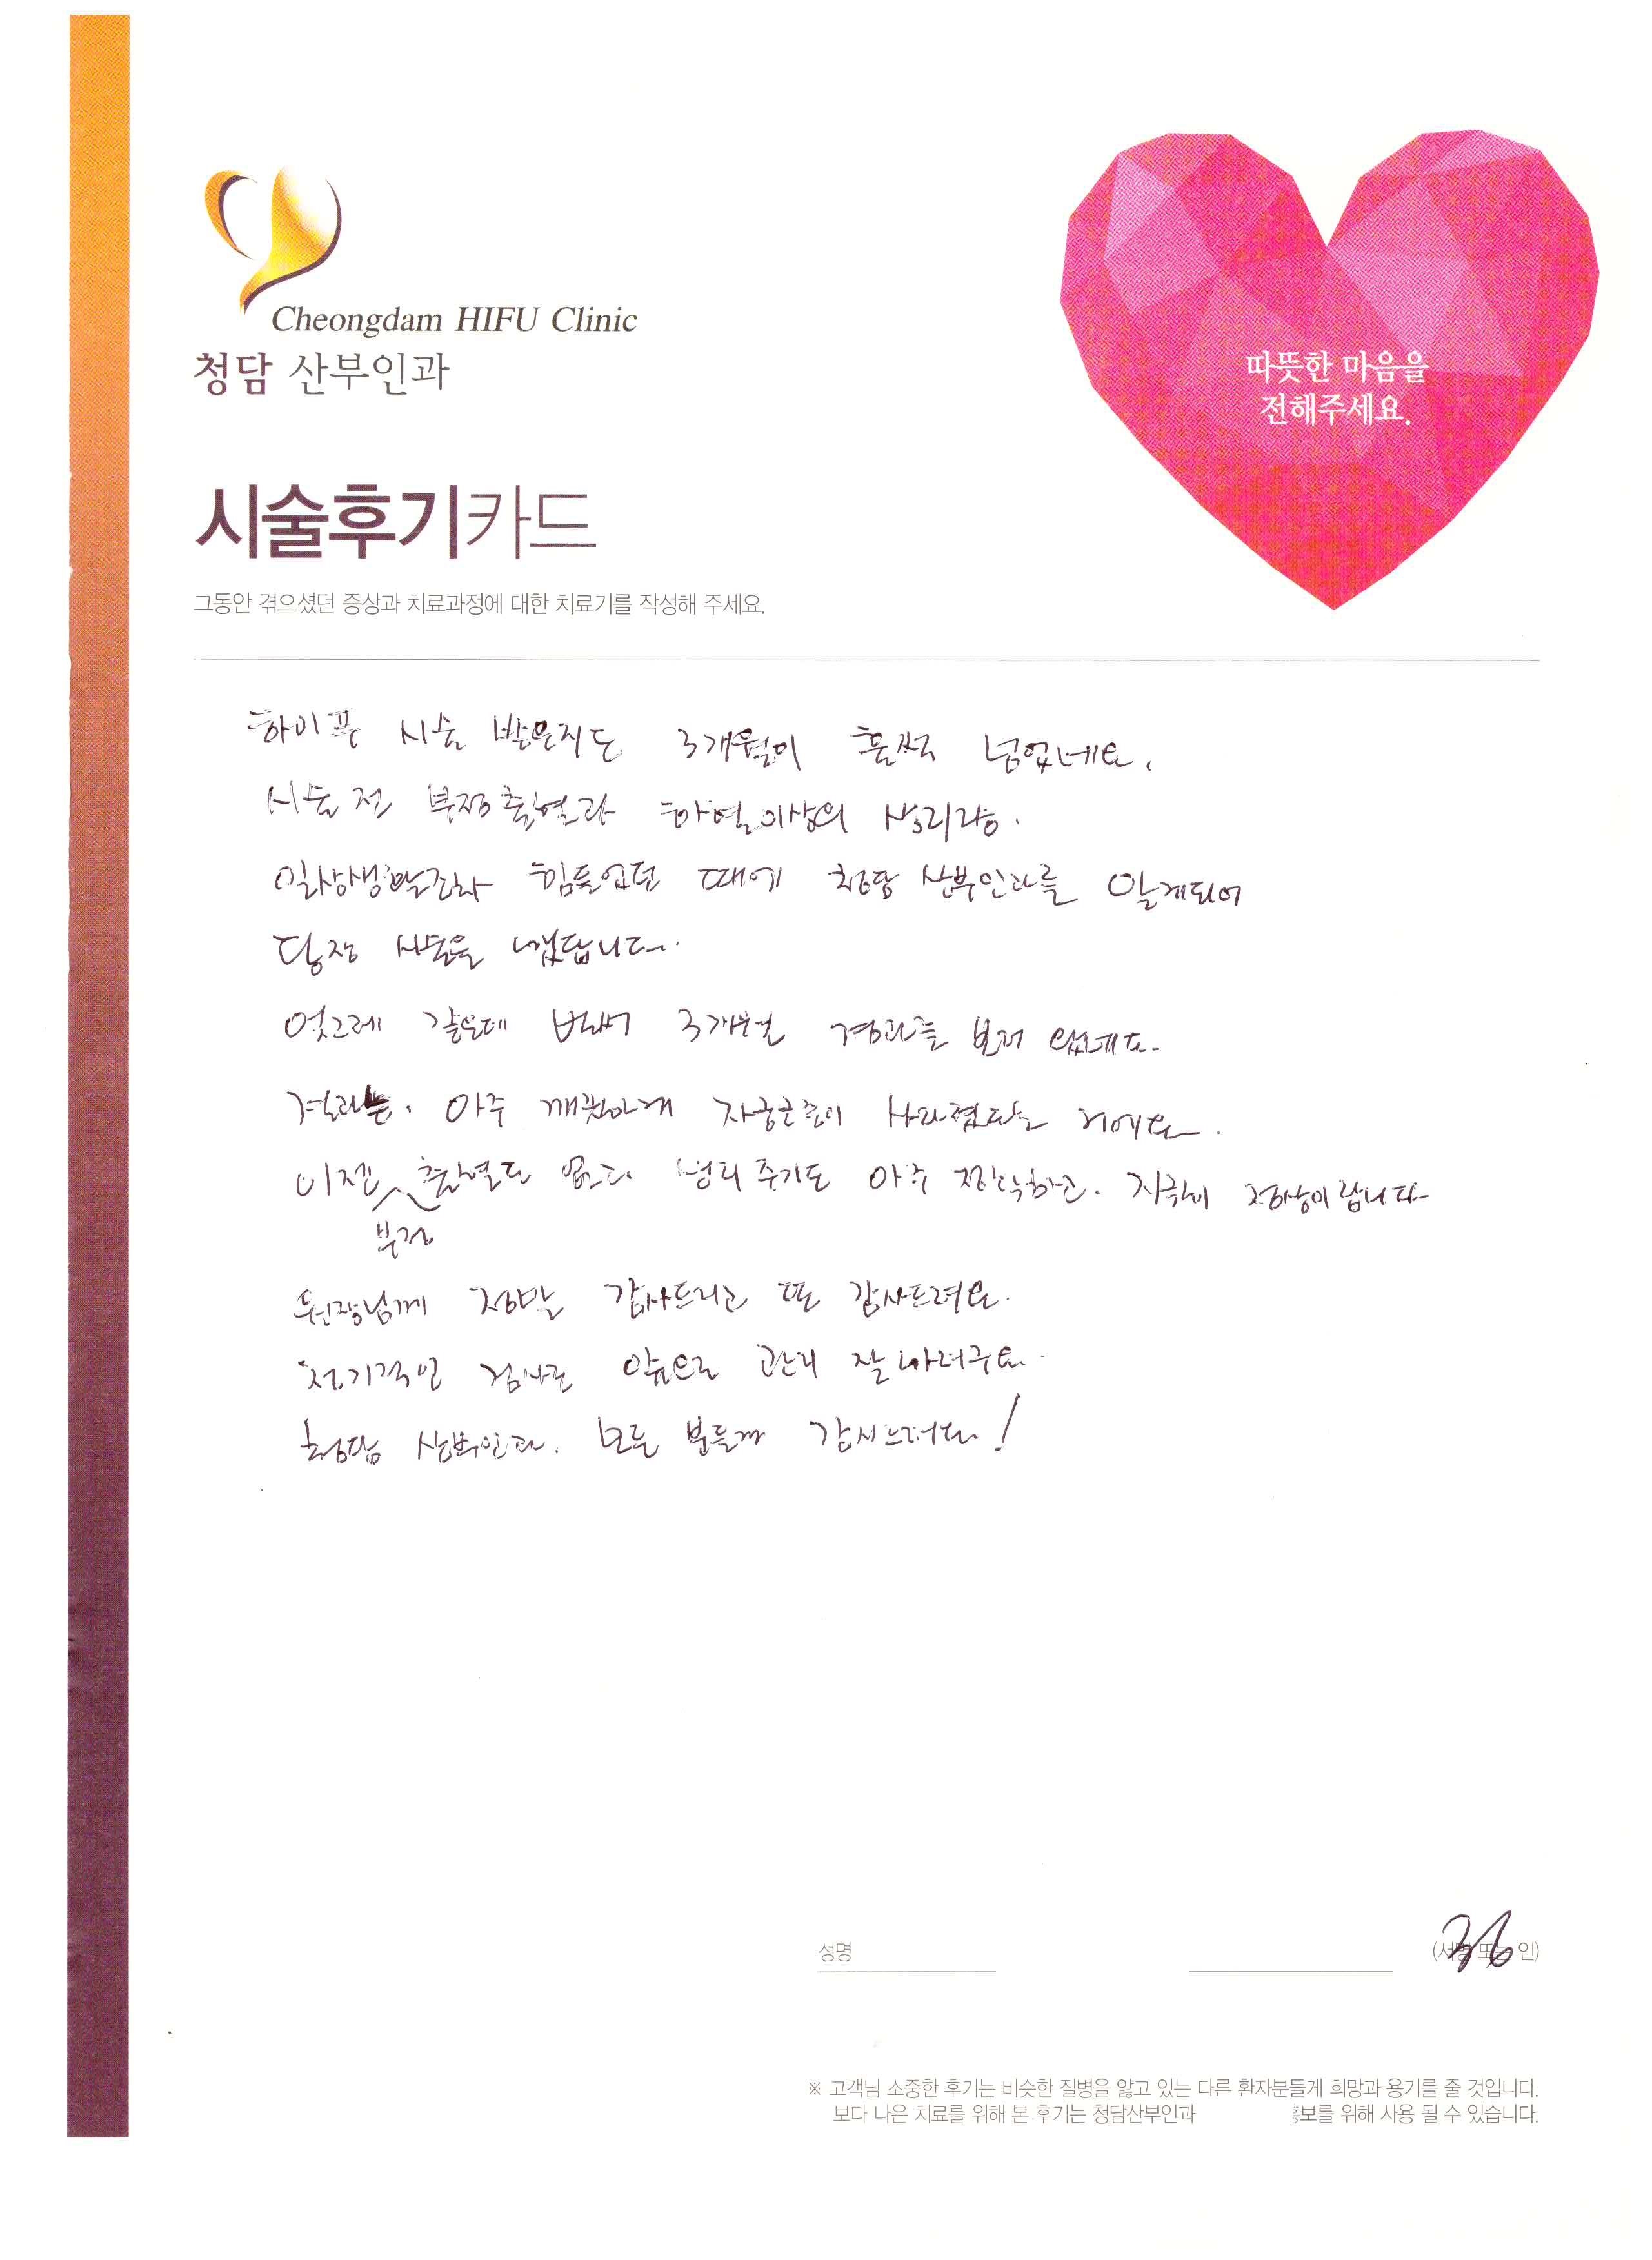 Cheongdam HIFU Clinic
청담 산부인과
따뜻한 마음을
전해주세요.
시술후기카드
그동안 겪으셨던 증상과 치료과정에 대한 치료기를 작성해 주세요.
하이푸 시술 받은지도 3개월이 훌쩍 넘었네요.
시술 전 부정출혈과 이상의 생리량.
일상생활조차 힘들었던 때에 청담 산부인과를 알게되어
당장 시술을 했답니다.
엊그제 같은데 벌써 3개월 경과를 보러 왔네요.
결과는. 아주 깨끗하게 자궁근종이 사라졌다는 거예요.
이젠 부정 출혈도 없고 생리 주기도 아주 정확하고. 지극히 정상이랍니다
원장님께 정말 감사드리고 또 감사드려요.
정기적인 검사로 앞으로 관리 잘 하려구요.
청담 산부인과. 모든 분들께 감사드려요!
성명
(서명 또는 인)
※ 고객님 소중한 후기는 비슷한 질병을 앓고 있는 다른 환자분들게 희망과 용기를 줄 것입니다.
보다 나은 치료를 위해 본 후기는 청담산부인과 홍보를 위해 사용 될 수 있습니다.